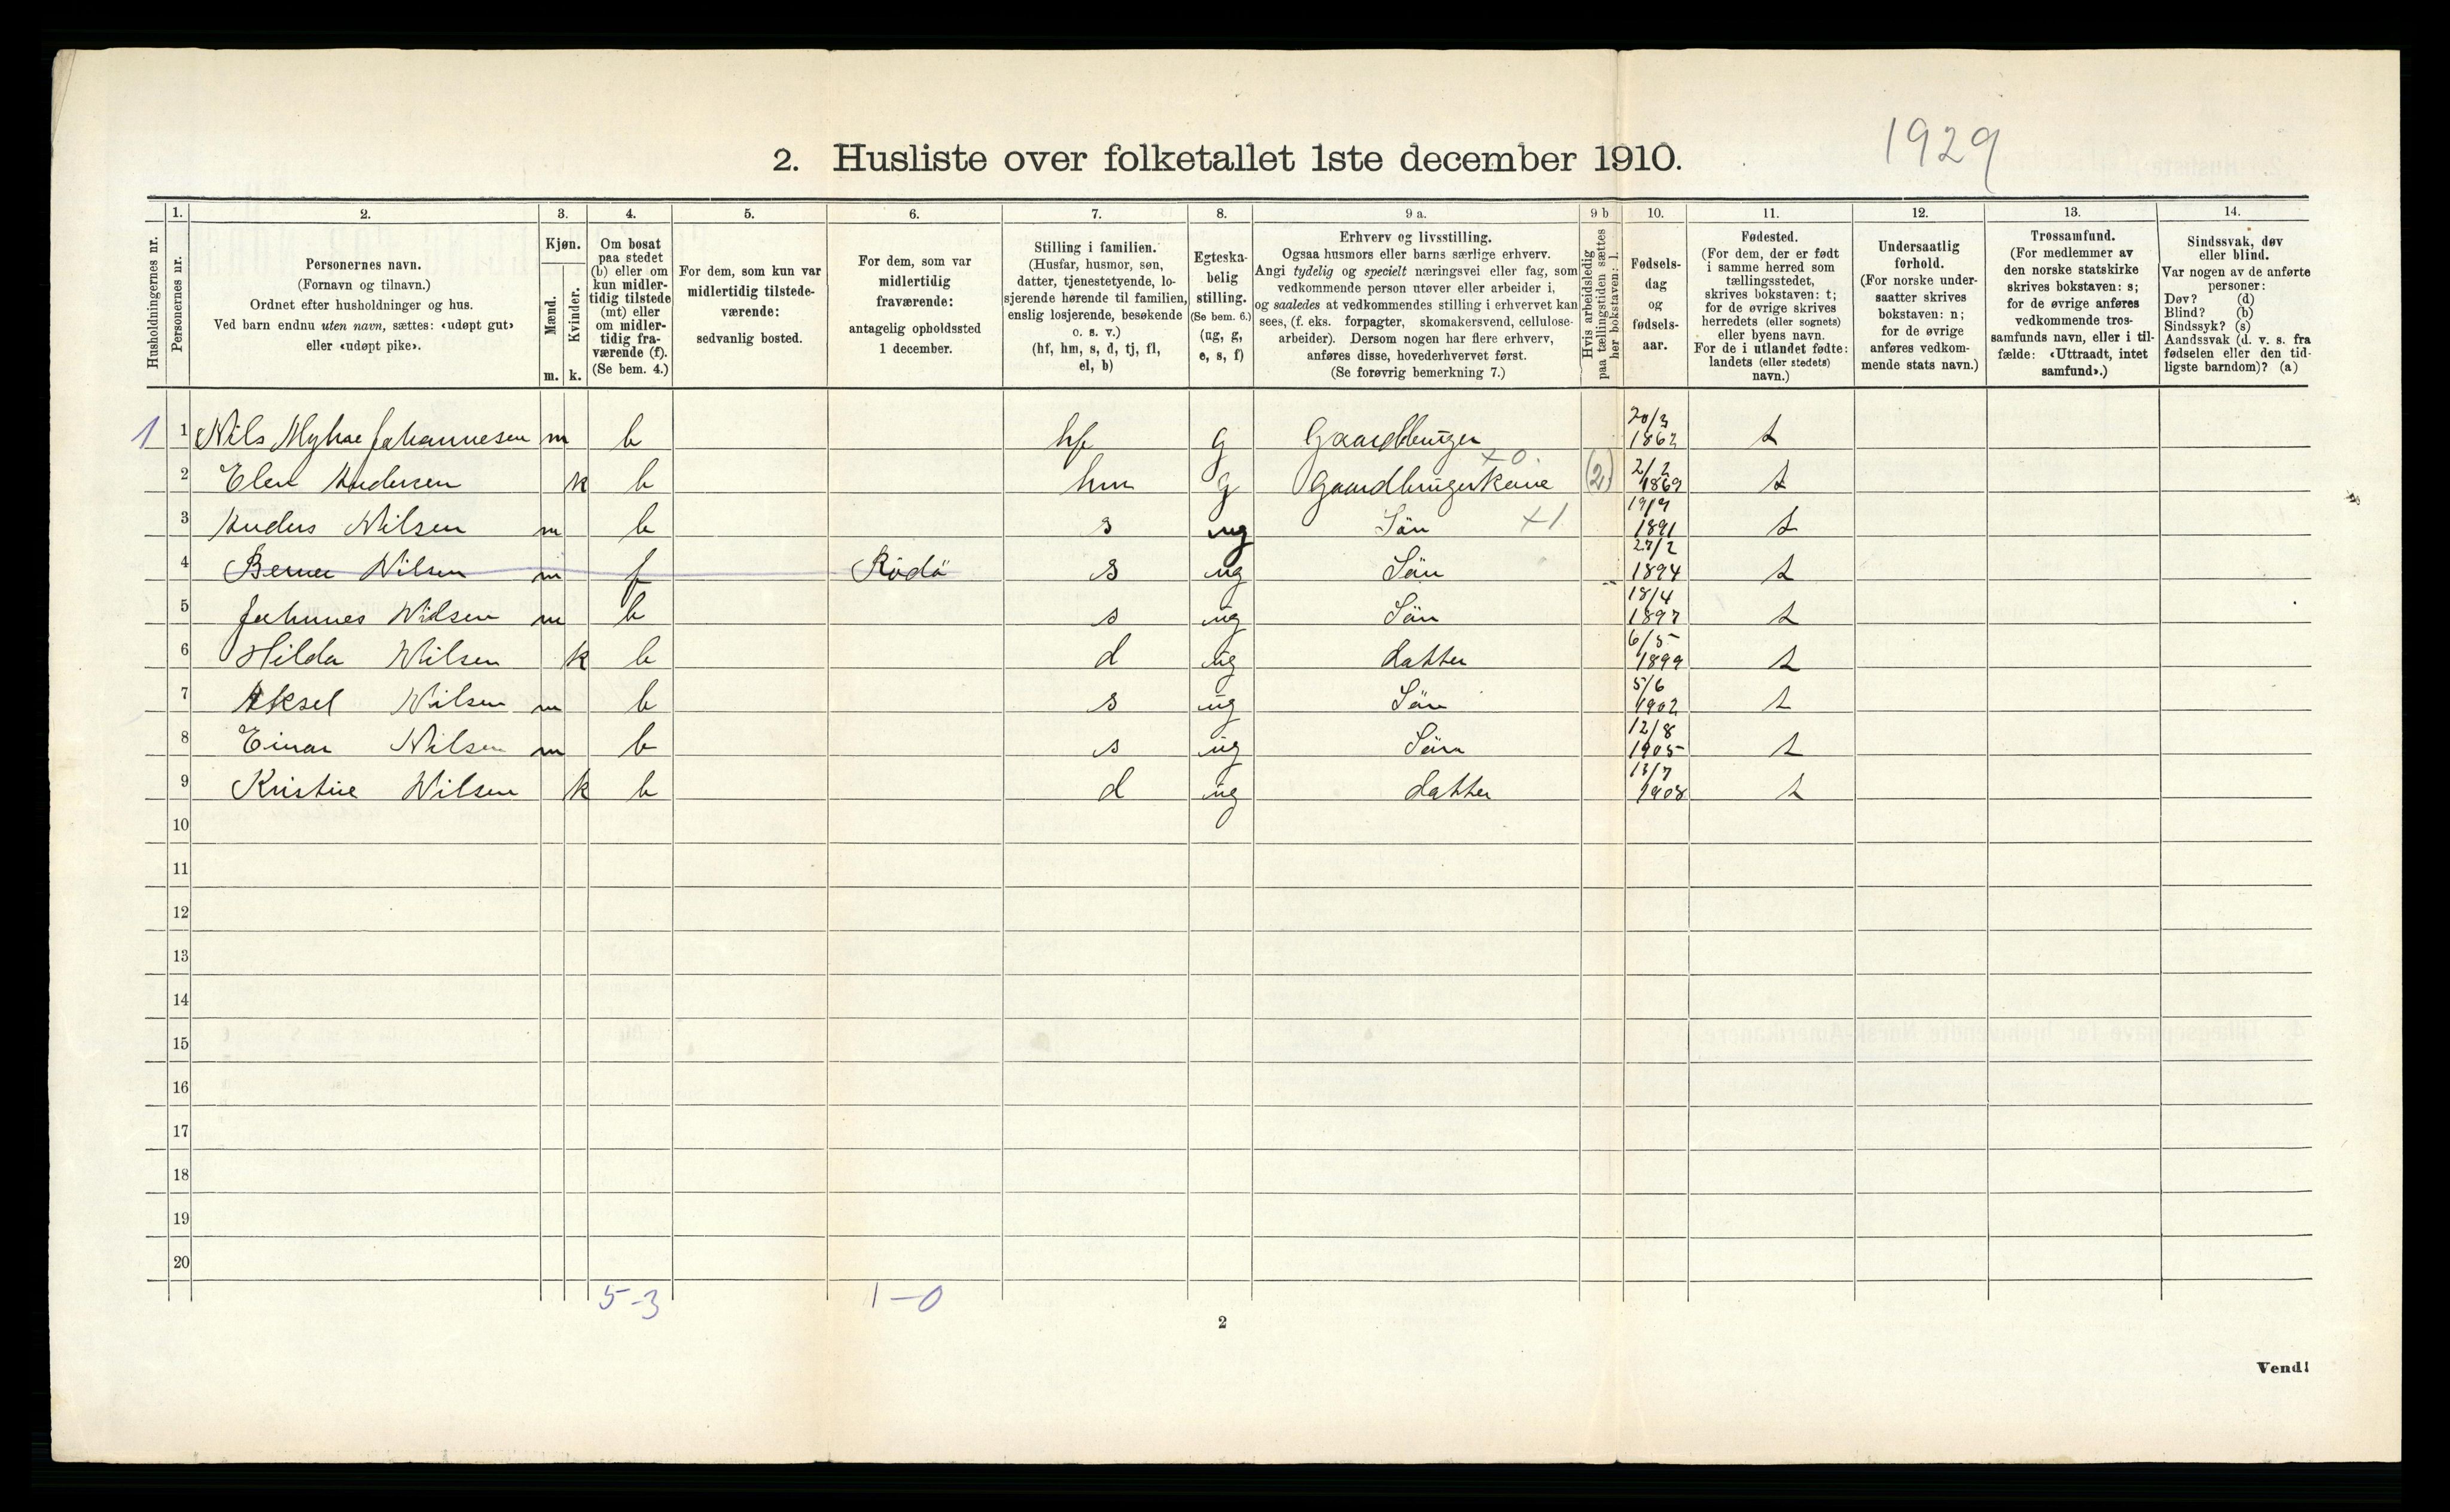 1929
2. Husliste over folketallet 1ste december 1910.
Husholdningernes nr.
1.
Personernes nr.
2.
Personernes navn.
(Fornavn og tilnavn.)
Ordnet efter husholdninger og hus.
Ved barn endnu uten navn, sættes: «udøpt gut»
eller «udøpt pike».
3.
Kjøn.
Mænd.
Kvinder.
m. k.
4.
Om bosat
paa stedet
(b) eller om
kun midler-
tidig tilstede
(mt) eller
om midler-
tidig fra-
værende (f).
(Se bem. 4.)
5.
For dem, som kun var
midlertidig tilstede-
værende:
sedvanlig bosted.
6.
For dem, som var
midlertidig
fraværende:
antagelig opholdssted
1 december.
7.
Stilling i familien.
(Husfar, husmor, søn,
datter, tjenestetyende, lo-
sjerende hørende til familien,
enslig losjerende, besøkende
o. s. v.)
(hf, hm, s, d, tj, fl,
el, b)
8.
Egteska-
belig
stilling.
(Se bem. 6.)
(ug, g,
e, s, f)
9 a.
Erhverv og livsstilling.
Ogsaa husmors eller barns særlige erhverv.
Angi tydelig og specielt næringsvei eller fag, som
vedkommende person utøver eller arbeider i,
og saaledes at vedkommendes stilling i erhvervet kan
sees, (f. eks. forpagter, skomakersvend, cellulose-
arbeider). Dersom nogen har flere erhverv,
anføres disse, hovederhvervet først.
(Se forøvrig bemerkning 7.)
9 b
Hvis arbeidsledig
paa tællingstiden sættes
her bokstaven: l.
10.
Fødsels-
dag
og
fødsels-
aar.
11.
Fødested.
(For dem, der er født
i samme herred som
tællingsstedet,
skrives bokstaven: t;
for de øvrige skrives
herredets (eller sognets)
eller byens navn.
For de i utlandet fødte:
landets (eller stedets)
navn.)
12.
Undersaatlig
forhold.
(For norske under-
saatter skrives
bokstaven: n;
for de øvrige
anføres vedkom-
mende stats navn.)
13.
Trossamfund.
(For medlemmer av
den norske statskirke
skrives bokstaven: s;
for de øvrige anføres
vedkommende tros-
samfunds navn, eller i til-
fælde: «Uttraadt, intet
samfund».)
14.
Sindssvak, døv
eller blind.
Var nogen av de anførte
personer:
Døv? (d)
Blind? (b)
Sindssyk? (s)
Aandssvak (d. v. s. fra
fødselen eller den tid-
ligste barndom)? (a)
1 1 Nils Myhre Johannesen m b hf g Gaardbruger 20/3 1862 t
2 Elen Andersen k b hm g Gaardbrugerkone +0. (2) 2/2 1869 t
3 Anders Nilsen m b s ug Sön +1 19/9 1891 t
4 Berner Nilsen m f Rödö s ug Sön 27/2 1894 t
5 Johnnes Nilsen m b s ug Sön 18/4 1897 t
6 Hilda Nilsen k b d ug datter 6/5 1899 t
7 Aksel Nilsen m b s ug Sön 5/6 1902 t
8 Einar Nilsen m b s ug Sön 12/8 1905 t
9 Kristine Nilsen k b d ug datter 13/7 1908 t
10
11
12
13
14
15
16
17
18
19
20
5-3 1-0
2
Vend!